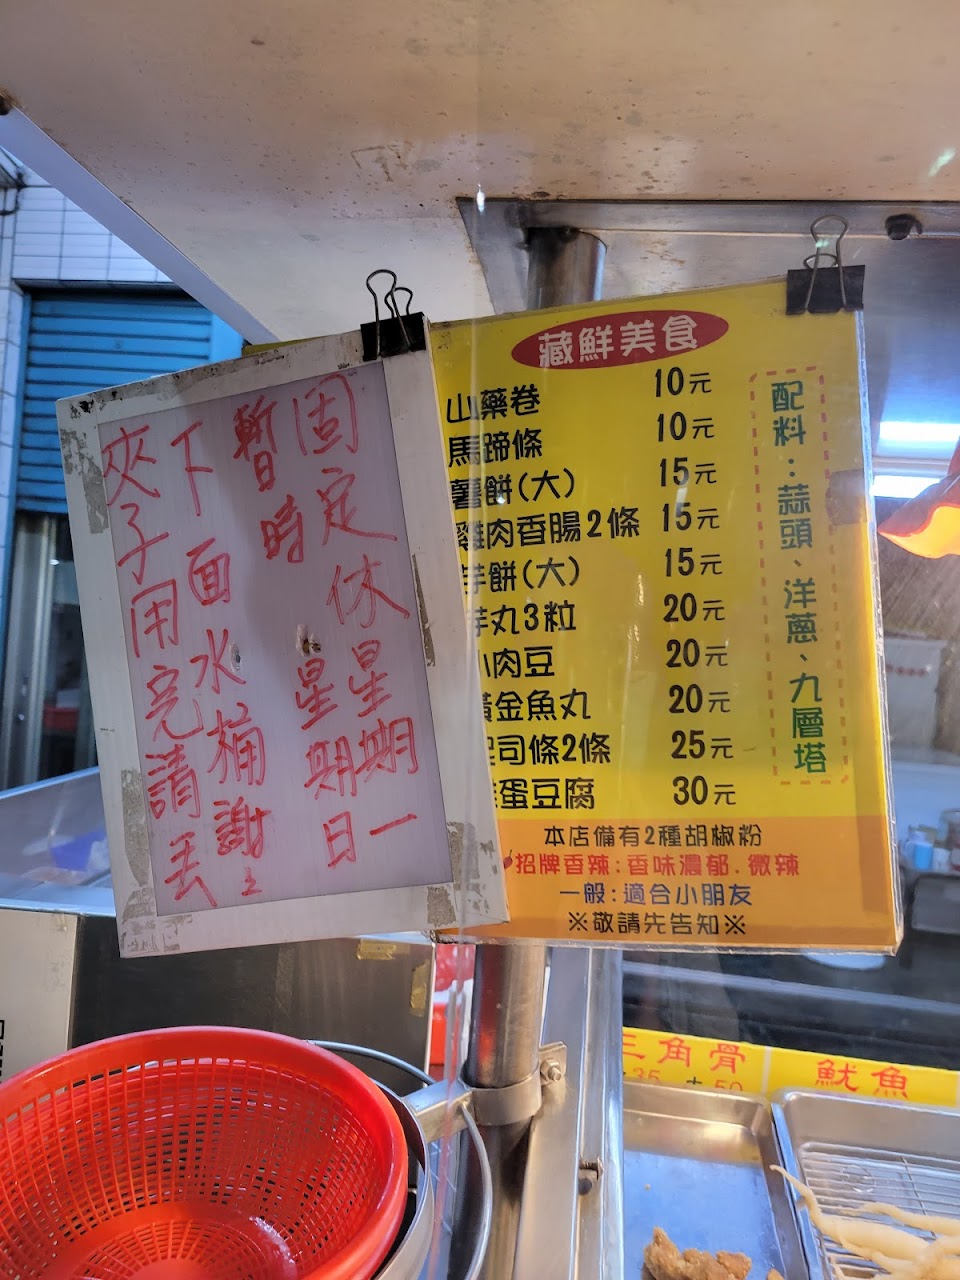 固定休星期一
暫時 星期日
下面水桶謝謝
夾子用完請丟
藏鮮美食
山藥卷 10元
馬蹄條 10元
薯餅(大) 15元
雞肉香腸2條 15元
芋餅(大) 15元
芋丸3粒 20元
小肉豆 20元
黃金魚丸 20元
起司條2條 25元
蛋豆腐 30元
配料:蒜頭、洋蔥、九層塔
本店備有2種胡椒粉
招牌香辣:香味濃郁.微辣
一般:適合小朋友
※敬請先告知※
三角骨
35 50
魷魚